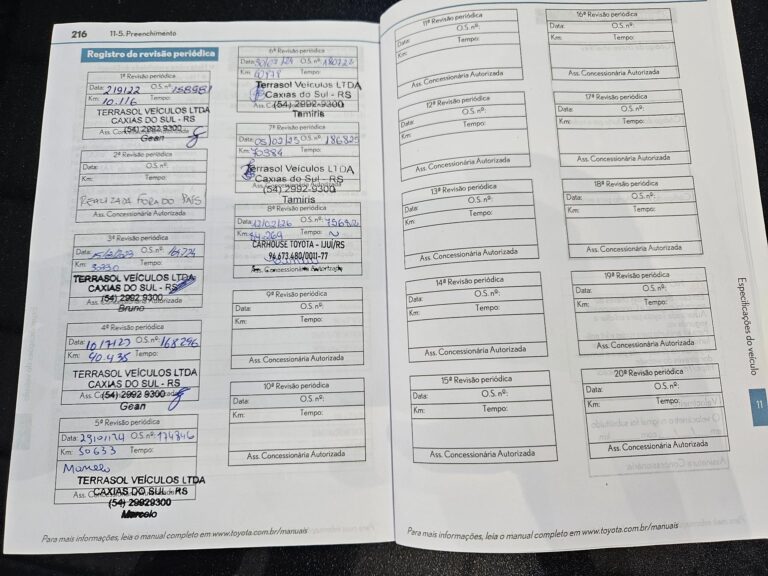 216 11-5. Preenchimento
Registro de revisão periódica
1ª Revisão periódica
Data: 219122 O.S. nº: 158981
Km: 10.116 Tempo:
TERRASOL VEÍCULOS LTDA
CAXIAS DO SUL - RS
(54) 2992 9300
Ass. Concessionária Autorizada
Gean
2ª Revisão periódica
Data: O.S. nº:
Km: Tempo:
REALIZADA FORA DO PAÍS
Ass. Concessionária Autorizada
3ª Revisão periódica
Data: O.S. nº:
Km: Tempo:
TERRASOL VEÍCULOS LTDA
CAXIAS DO SUL - RS
(54) 2992 9300
Ass. Concessionária Autorizada
Bruno
4ª Revisão periódica
Data: 10/7/23 O.S. nº: 168296
Km: 40.435 Tempo:
TERRASOL VEÍCULOS LTDA
CAXIAS DO SUL - RS
(54) 2992 9300
Ass. Concessionária Autorizada
Gean
5ª Revisão periódica
Data: 23/01/24 O.S. nº: 174846
Km: 50633 Tempo:
Marcelo
TERRASOL VEÍCULOS LTDA
CAXIAS DO SUL - RS
Ass. Concessionária Autorizada
(54) 29929300
Marcelo
6ª Revisão periódica
Data: O.S. nº:
Km: Tempo:
Terrasol Veículos LTDA
Caxias do Sul - RS
(54) 2992-9300
Ass. Concessionária Autorizada
Tamiris
7ª Revisão periódica
Data: 05/02/25 O.S. nº: 186825
Km: 70384 Tempo:
Terrasol Veículos LTDA
Caxias do Sul - RS
Ass. Concessionária Autorizada
(54) 2992-9300
Tamiris
8ª Revisão periódica
Data: 12/02/26 O.S. nº: 75682
Km: 84.269 Tempo: ~
CARHOUSE TOYOTA - IJUÍ/RS
94.673.480/0011-77
Ass. Concessionária Autorizada
9ª Revisão periódica
Data: O.S. nº:
Km: Tempo:
Ass. Concessionária Autorizada
10ª Revisão periódica
Data: O.S. nº:
Km: Tempo:
Ass. Concessionária Autorizada
Para mais informações, leia o manual completo em www.toyota.com.br/manuais
11ª Revisão periódica
Data: O.S. nº:
Km: Tempo:
Ass. Concessionária Autorizada
12ª Revisão periódica
Data: O.S. nº:
Km: Tempo:
Ass. Concessionária Autorizada
13ª Revisão periódica
Data: O.S. nº:
Km: Tempo:
Ass. Concessionária Autorizada
14ª Revisão periódica
Data: O.S. nº:
Km: Tempo:
Ass. Concessionária Autorizada
15ª Revisão periódica
Data: O.S. nº:
Km: Tempo:
Ass. Concessionária Autorizada
16ª Revisão periódica
Data: O.S. nº:
Km: Tempo:
Ass. Concessionária Autorizada
17ª Revisão periódica
Data: O.S. nº:
Km: Tempo:
Ass. Concessionária Autorizada
18ª Revisão periódica
Data: O.S. nº:
Km: Tempo:
Ass. Concessionária Autorizada
19ª Revisão periódica
Data: O.S. nº:
Km: Tempo:
Ass. Concessionária Autorizada
20ª Revisão periódica
Data: O.S. nº:
Km: Tempo:
Ass. Concessionária Autorizada
Especificações do veículo
11
Para mais informações, leia o manual completo em www.toyota.com.br/manuais